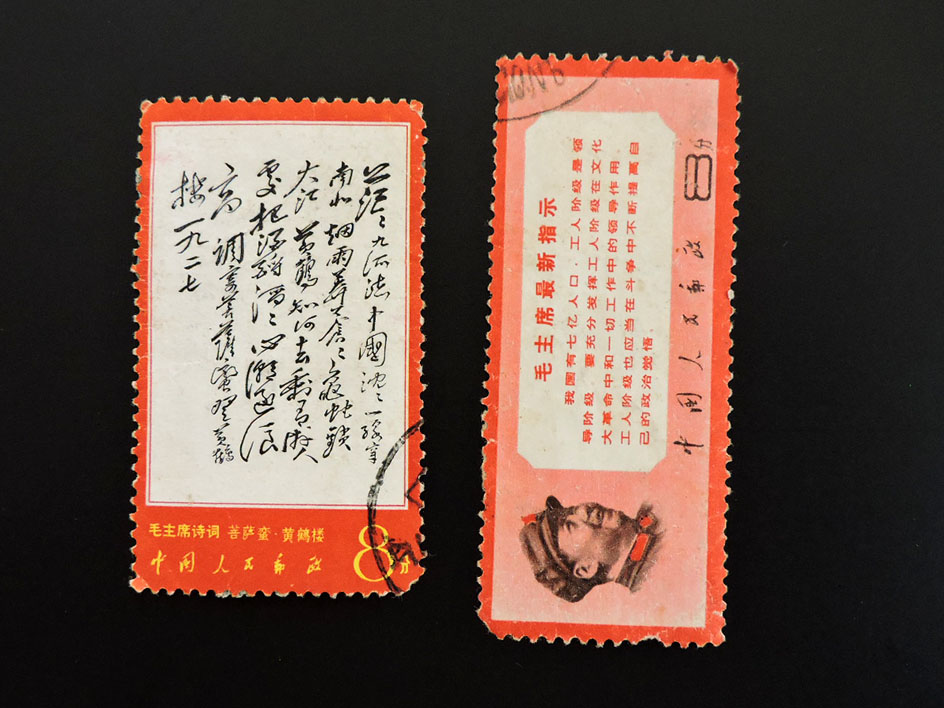 茫〻九派流中國沈〻一線穿
南北烟雨莽蒼〻龜蛇鎖
大江 黄鶴知何去剩有游人
處把酒酹滔〻心潮逐浪
高 調寄菩薩蠻登黄鶴
樓一九二七
毛主席诗词 菩萨蛮·黄鹤楼
中国人民邮政
8分
毛主席最新指示
我国有七亿人口，工人阶级是领
导阶级。要充分发挥工人阶级在文化
大革命中和一切工作中的领导作用。
工人阶级也应当在斗争中不断提高自
己的政治觉悟
中国人民邮政
8分